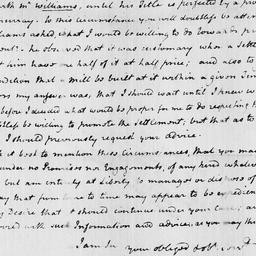 with Mr Williams, until his Title is perfected by a
survey. To this circumstance you will doubtless
asked, what I would be willing to do towards
out? he observed that it was customary when a Settle
him have one half of it at half price; and also to
condition that a mill be built at it within a given Time
my answer was, that I should wait until I knew
before I decided what would be proper for me to do respecting
be willing to promote the Settlement, but that as to
I should previously request your advice.
it best to mention these circumstances, that you may
under no Promises nor Engagements, of any kind whatever
but am entirely at Liberty to manage or dispose of
way that from time to time may appear to be expedient
my Desire that I should continue under your care, and
with such Information and advice, as you may
I am Sir your obliged & obt servt